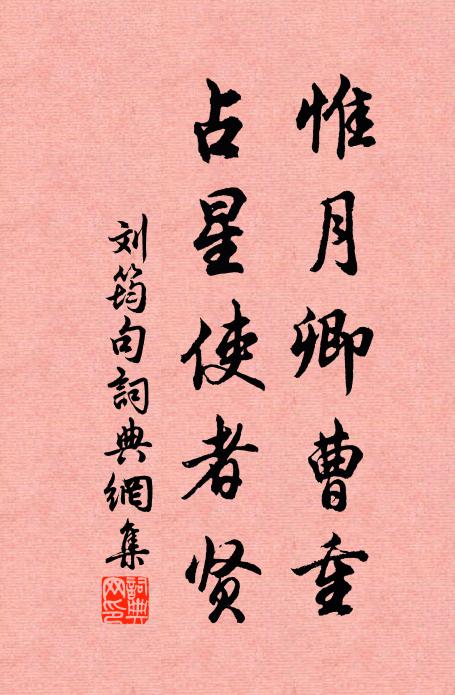 惟月卿曹重
占星使者贤
刘筠句詞典網集
詞典網印